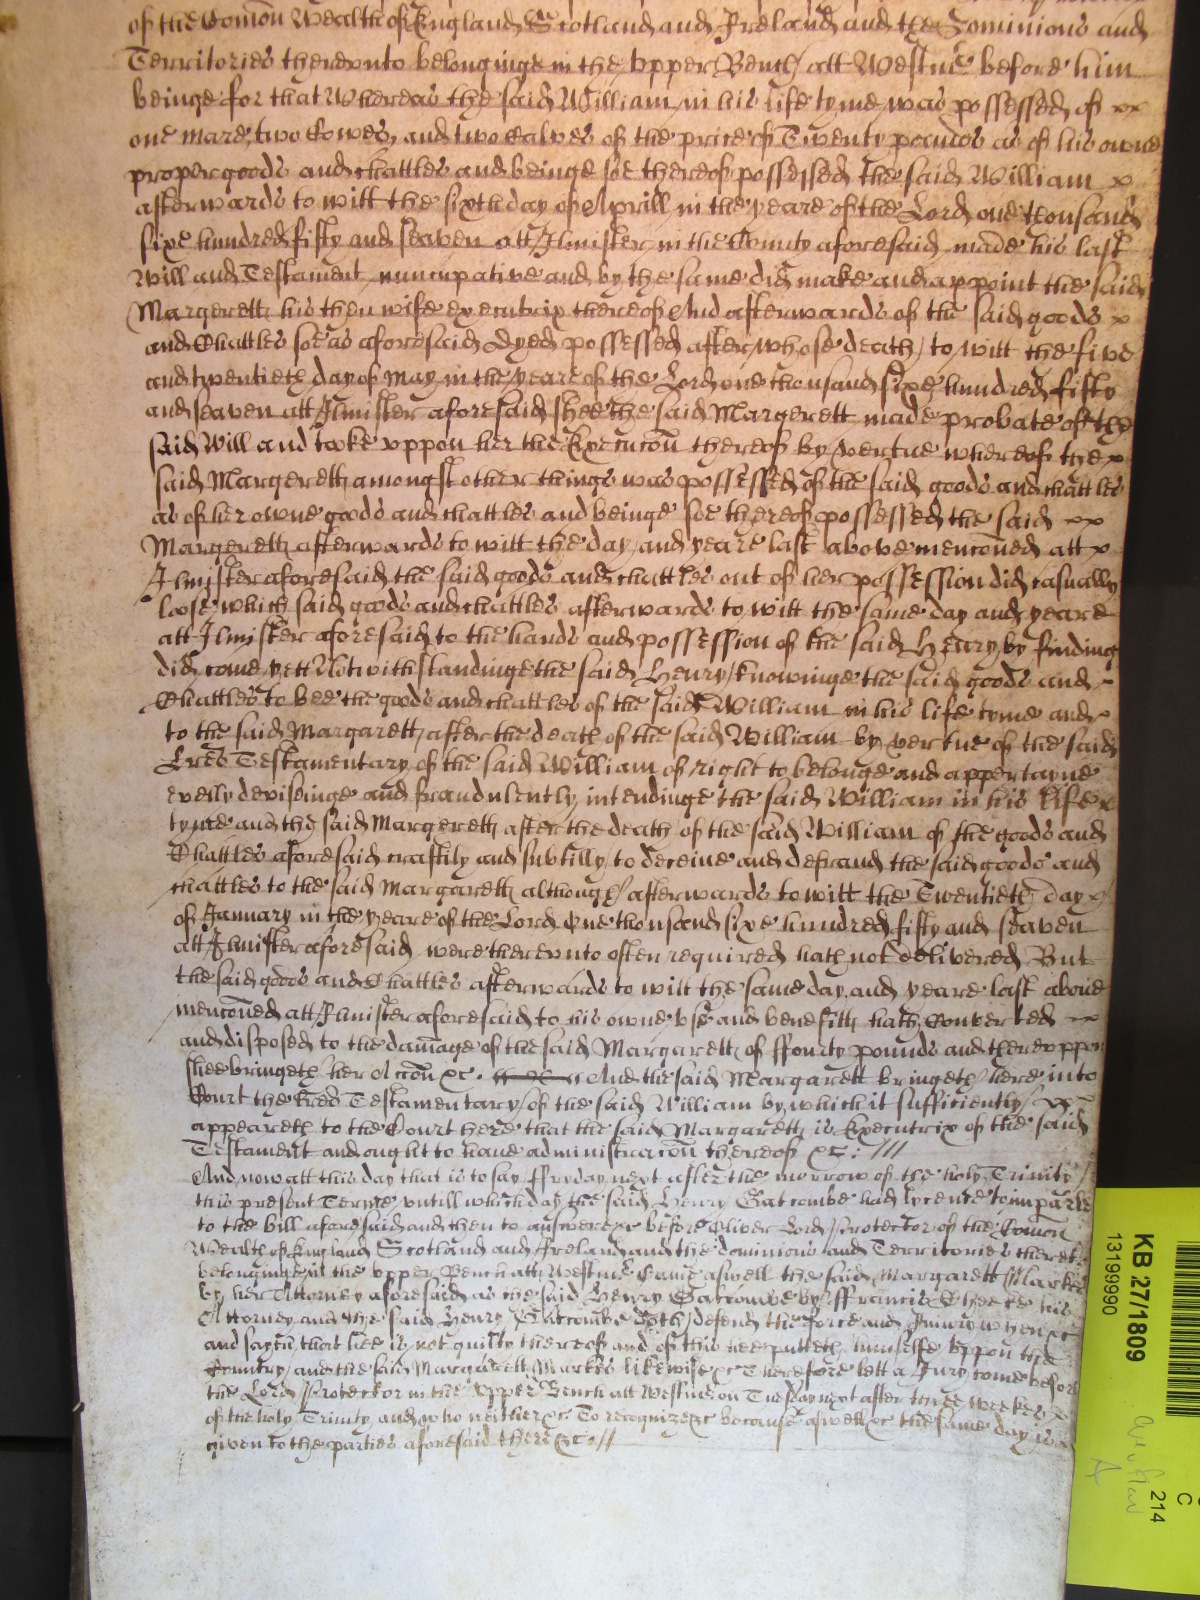 of the Comon Wealth of England Scotland and Ireland and the Dominions and
Territories therevnto belonginge in the vpper Bench att Westm̄ before him
beinge for that Whereas the said William in his life tyme was possessed of xx
one mare, two Cowes, and two Calves of the price of Twenty pounds as of his owne
proper goods and chattles and beinge soe thereof possessed the said William x
afterwards to witt the sixth day of Aprill in the yeare of the Lord one thousand
sixe hundred fifty and seaven att Ilmister in the County aforesaid made his last
Will and Testament nuncupative and by the same did make and appoint the said
Margerett his then wife executrix thereof And afterwards of the said goods x
and Chattles soe as aforesaid dyed possessed after whose death to witt the five
and twentieth day of May in the yeare of the Lord one thousand sixe hundred fifty
and seaven att Ilmister aforesaid shee the said Margerett made probate of the
said Will and tooke vppon her the Execucōn thereof by vertue whereof the x
said Margerett amongst other things was possessed of the said goods and chattles
as of her owne goods and chattles and beinge soe thereof possessed the said xx
Margerett afterwards to witt the day and yeare last above mencōned att x
Ilmister aforesaid the said goods and chattles out of her possession did casually
loose which said goods and chattles afterwards to witt the same day and yeare
att Ilmister aforesaid to the hands and possession of the said Henry by finding
did come yett Notwithstandinge the said Henry knowinge the said goods and ~
Chattles to bee the goods and chattles of the said William in his life tyme and x
to the said Margarett after the death of the said William by vertue of the said
Lr̄es Testamentary of the said William of right to belonge and appertayne
evilly devisinge and fraudulently intendinge the said William in his life x
tyme and the said Margerett after the death of the said William of the goods and
Chattles aforesaid craftily and subtilly to deceive and defraud the said goods and
chattles to the said Margarett although afterwards to witt the Twentieth day x
of January in the yeare of the Lord One thousand sixe hundred fifty and seaven
att Ilmister aforesaid were therevnto often required hath not delivered But
the said goods and Chattles afterwards to witt the same day and yeare last above
mencōned att Ilmister aforesaid to his owne vse and benefitt hath Converted xx
and disposed to the damage of the said Margarett of ffourty pounds and therevppon
shee bringeth her Accōn xc. And the said Margarett bringeth here into
Court the Lr̄es Testamentary of the said William by which it sufficiently xx
appeareth to the Court here that the said Margarett is Executrix of the said
Testament and ought to haue administracōn thereof xc: ///
And now att this day that is to say ffryday next after the morrow of the holy Trinity
this present Terme vntill which day the said Henry Gatcombe had lycence to imparle
to the bill aforesaid and then to answere xc before Oliver Lord Protector of the Comon
Wealth of England Scotland and Ireland and the dominions and Territories therevnto
belonginge in the vpper Bench att Westm̄ came aswell the said Margarett Markes
by her Attorney aforesaid as the said Henry Gatcombe by ffrancis Cheeke his
Attorney and the said Henry Gatcombe doth defend the force and Iniury when xc
and sayth that hee is not guilty thereof and of this hee putteth himselfe vppon the
Country and the said Margarett Markes likewise xc Therefore lett a Jury come before
the Lord Protector in the vpper Bench att Westm̄ on Tuesday next after three weekes
of the holy Trinity and who neither xc To recognize xc because aswell xc the same day is
given to the parties aforesaid there xc //
KB 27/1809
13199990
214
C
A